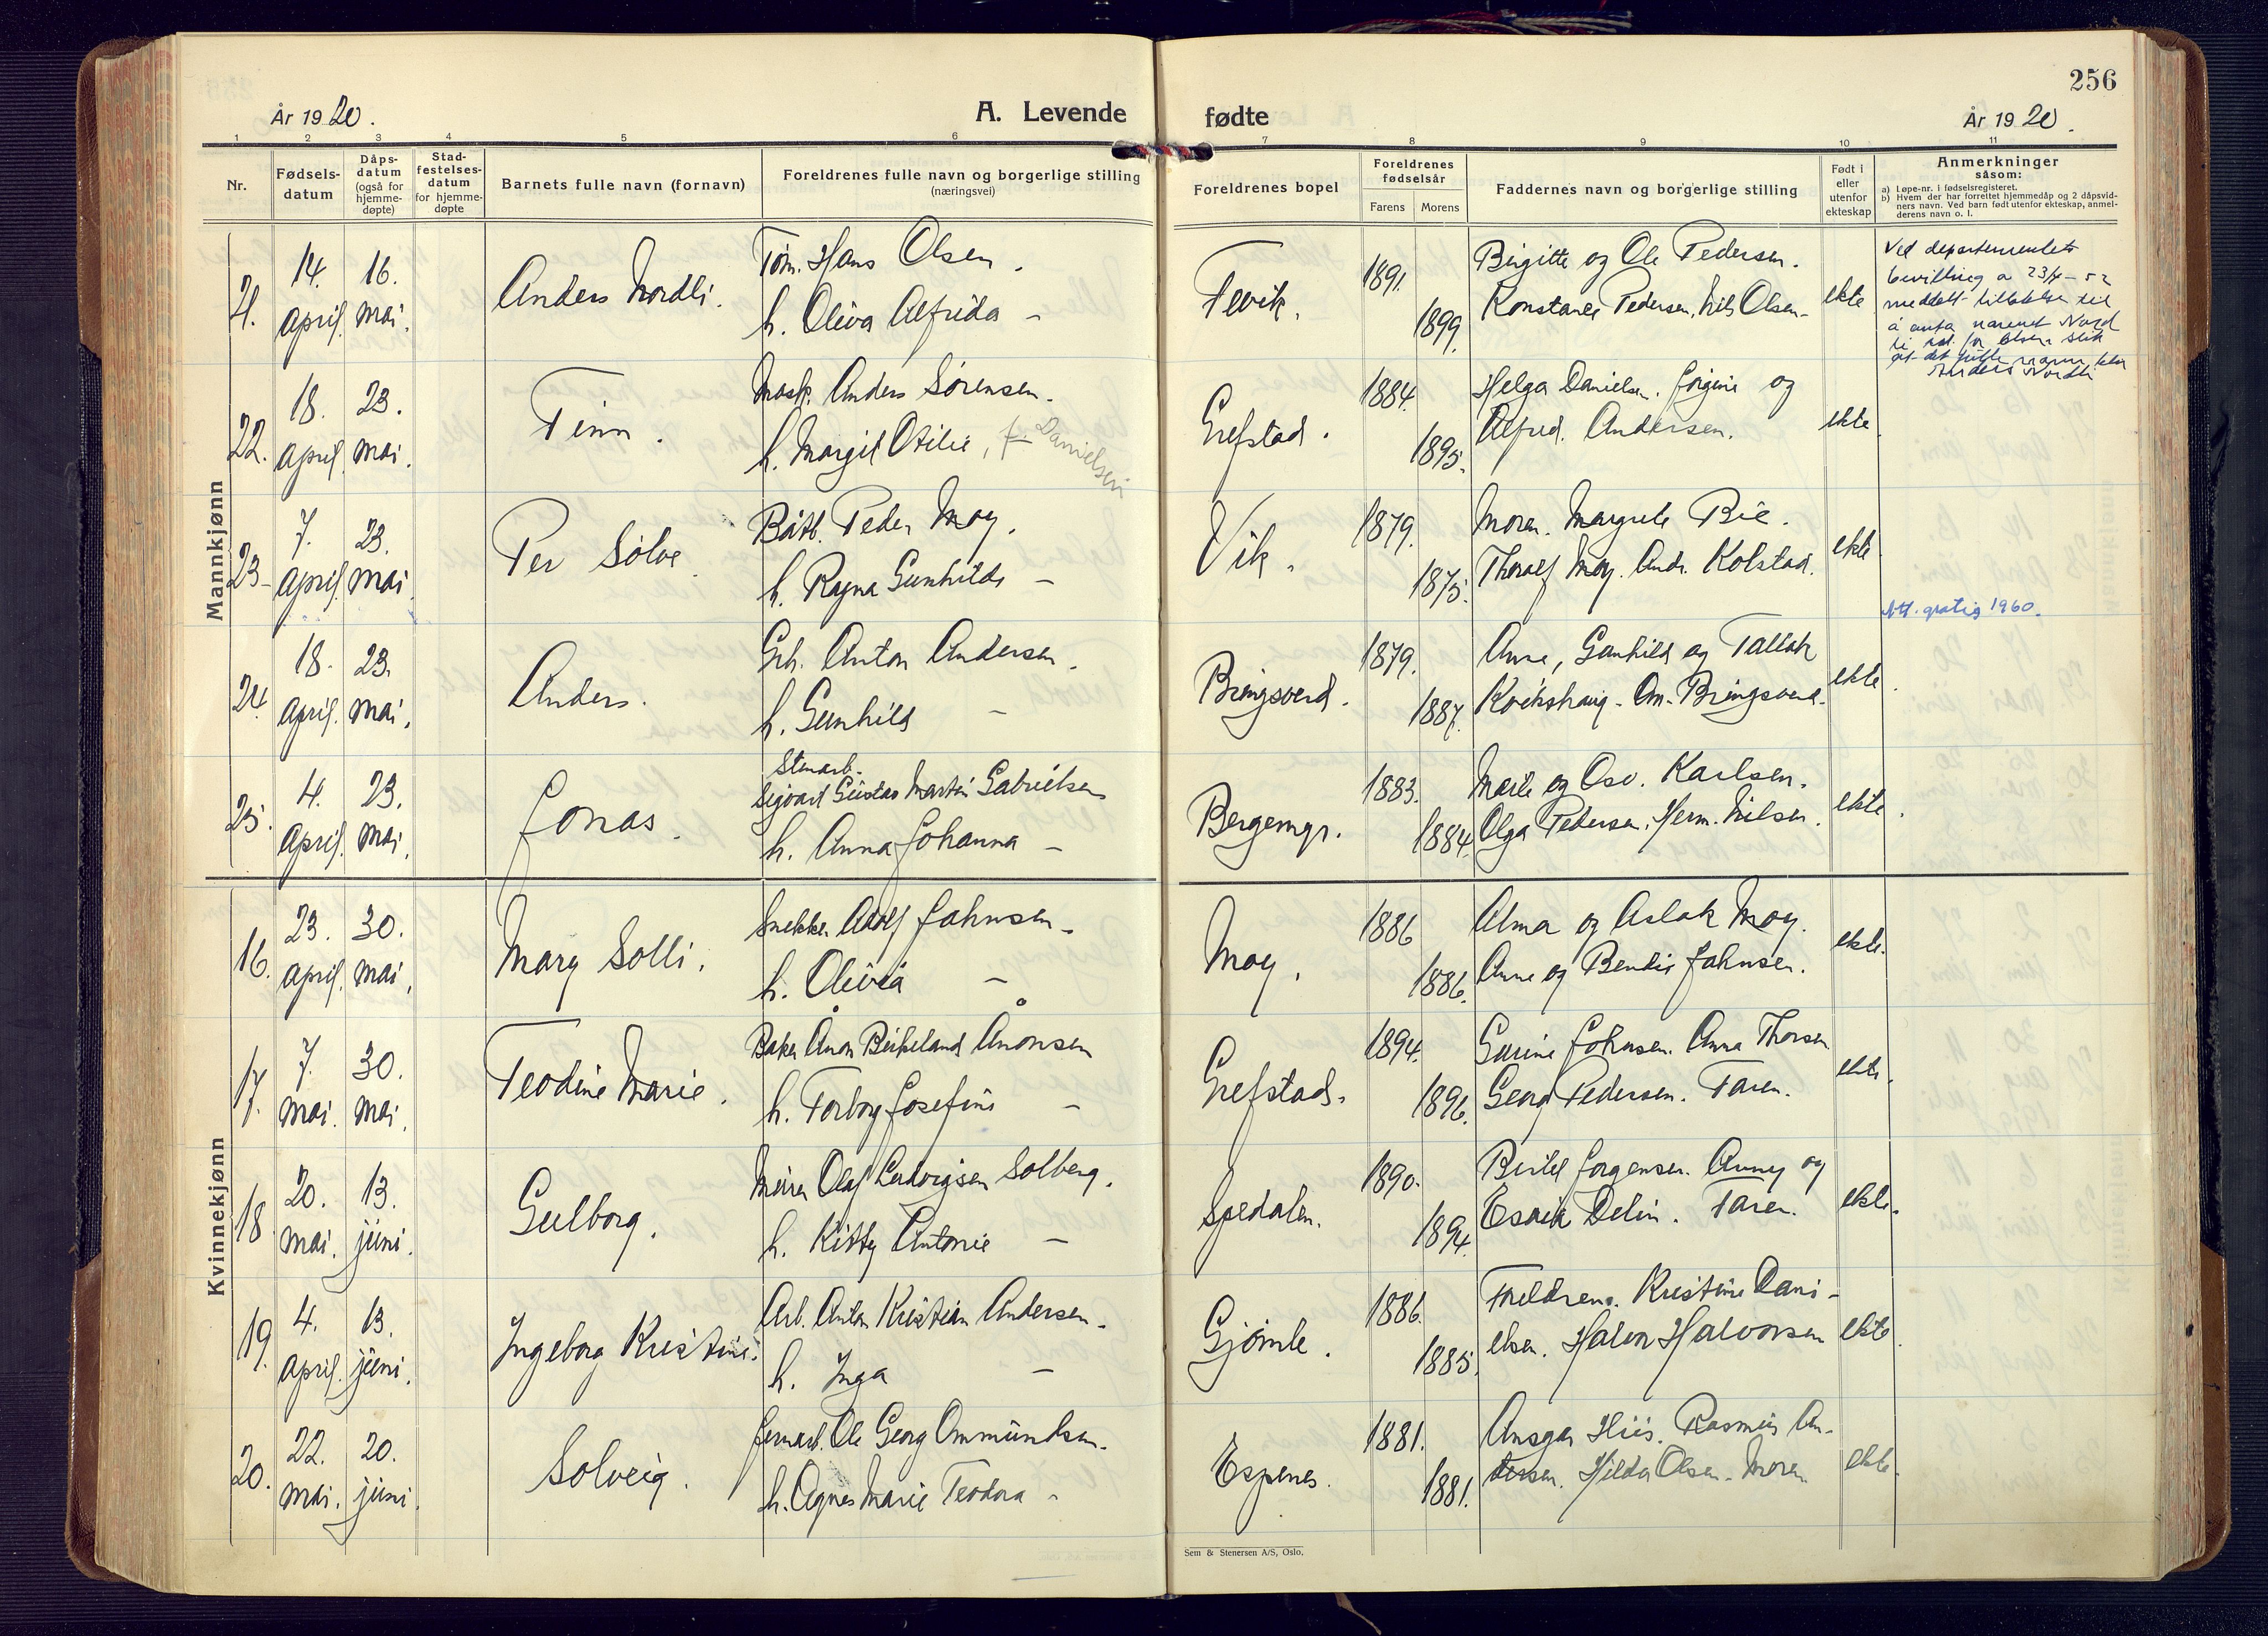 256
År 1920.
A. Levende fødte
År 1920.
1 2 3 4 5 6 7 8 9 10 11
Nr.
Fødsels-
datum
Dåps-
datum
(også for
hjemme-
døpte)
Stad-
festelses-
datum
for hjemme-
døpte
Barnets fulle navn (fornavn)
Foreldrenes fulle navn og borgerlige stilling
(næringsvei)
Foreldrenes bopel
Foreldrenes
fødselsår
Farens Morens
Faddernes navn og borgerlige stilling
Født i
eller
utenfor
ekteskap
Anmerkninger
såsom:
a) Løpe-nr. i fødselsregisteret.
b) Hvem der har forrettet hjemmedåp og 2 dåpsvid-
ners navn. Ved barn født utenfor ekteskap, anmel-
derens navn o. l.
Mannkjønn
21. 14. april. 16. mai. Anders Nordli.
Tøm. Hans Olsen.
h. Oliva Alfrida —
Fevik. 1891. 1899.
Birgitte og Ole Pedersen.
Konstance Pedersen, Nils Olsen.
ekte
Ved departementets
bevilling a 23/4-52
meddelt tillatelse til
å anta navnet Nord
li ist. for Olsen slik
at det fulle navn blir
Anders Nordli
22. 18. april. 23. mai. Finn.
Mask. Anders Sørensen.
h. Margit Otilie, f. Danielsen
Grefstad. 1884. 1895.
Helga Danielsen. Jørgine og
Alfred. Andersen.
ekte
23. 7. april. 23. mai. Per Sølve
Båtb. Peder Moy.
h. Ragna Gunhilds —
Vik. 1879. 1875.
Moren. Margrete Bie.
Thoralf Moy. Andr. Kolstad.
ekte
Att. gratis 1960.
24. 18. april. 23. mai. Anders.
Grb. Anton Andersen.
h. Gunhild —
Bringsverd. 1879. 1887.
Anna, Gunhild og Tallak
Kvikshaug. Om. Bringsverd.
ekte.
25. 4. april. 23. mai. Jonas.
Stenarb.
Sigvart Gustav Martin Gabrielsen
h. Anna Johanna —
Bergemgr. 1883. 1884.
Marie og Osv. Karlsen.
Olga Pedersen. Herm. Nilsen.
ekte.
Kvinnekjønn
16. 23. april. 30. mai. Mary Solli.
Snekker Adolf Jahnsen —
h. Olivia —
Moy. 1886 1886.
Alma og Aslak Moy.
Anne og Bendix Jahnsen.
ekte.
17. 7. mai. 30. mai. Teodine Marie.
Baker Ånon Birkeland Ånonsen
h. Torborg Josefine —
Grefstad. 1894. 1896.
Gurine Johnsen. Anna Thorsen
Georg Pedersen. Faren.
ekte.
18. 20. mai. 13. juni. Gulborg.
Murer Olaf Ludvigsen Solberg.
h. Kitty Antonie —
Spedalen. 1890. 1894.
Bertel Jorgensen. Anny og
Esaia Delin. Faren.
ekte.
19. 4. april. 13. juni. Ingeborg Kristine.
Arb. Anton Kristian Andersen.
h. Inga —
Gjømle. 1886. 1885.
Foreldrene. Kristine Dani-
elsen. Halvor Halvorsen
ekte.
20. 22. mai. 20. juni. Solveig.
Jernarb. Ole Georg Ommundsen.
h. Agnes Marie Teodora -
Espenes. 1881. 1881.
Ansgar Hiis. Rasmus An-
dersen. Hilda Olsen. Moren
ekte.
Sem & Stenersen A/S, Oslo.